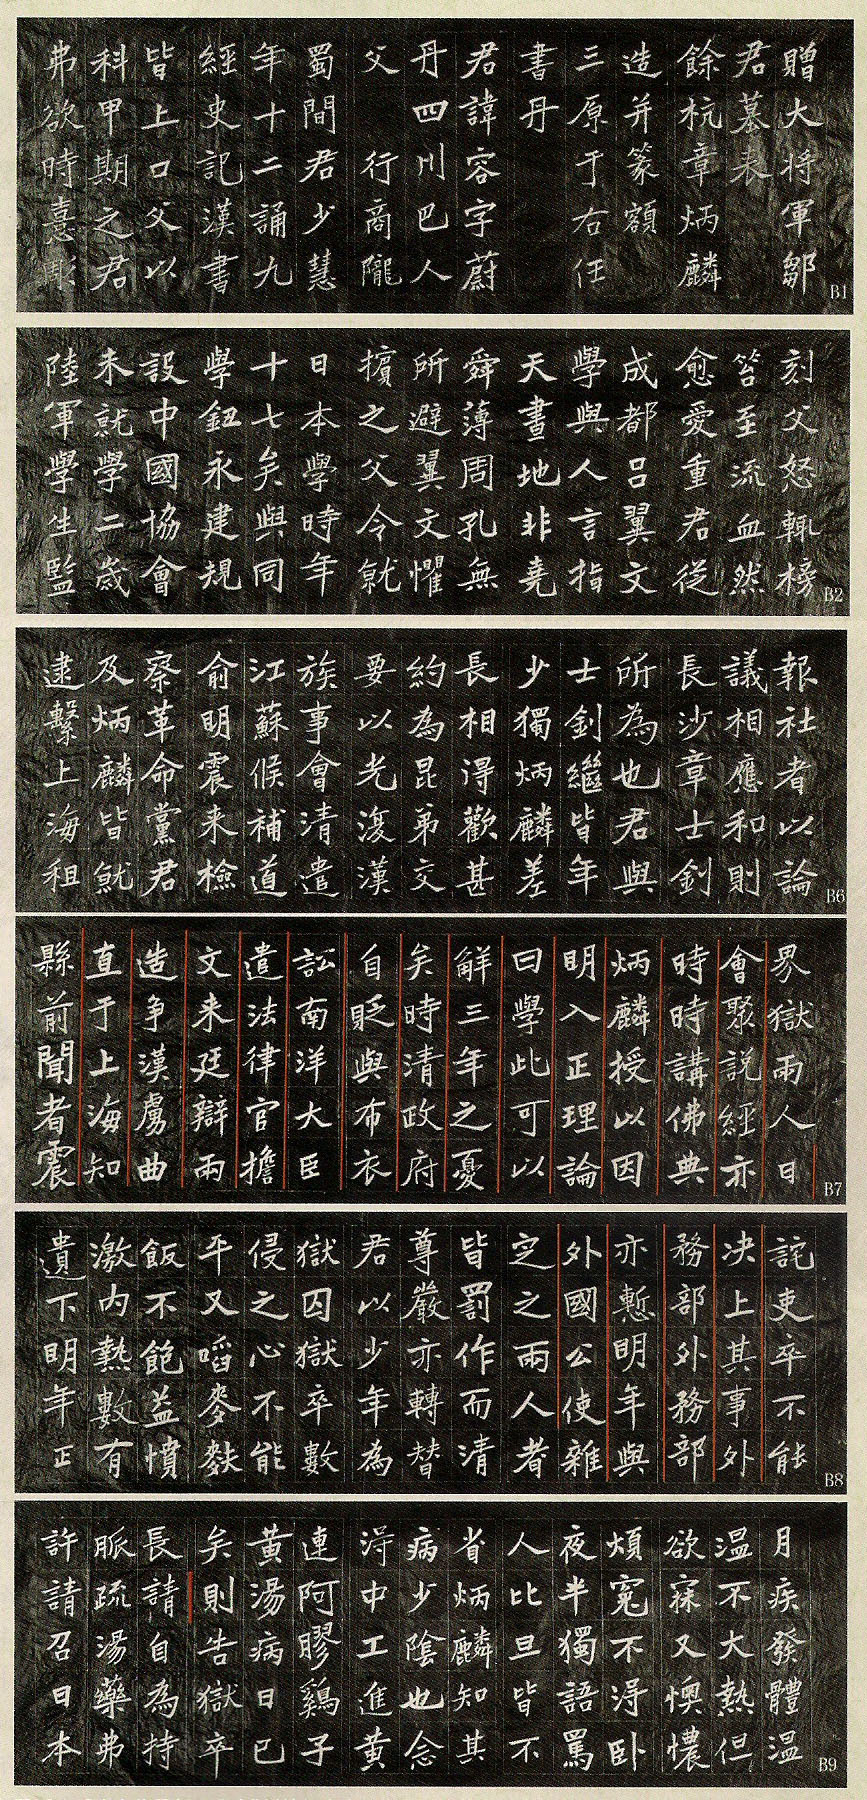 贈大将軍鄒
君墓表
餘杭章炳麟
造并篆額
三原于右任
書丹
君諱容字蔚
丹四川巴人
父 行商隴
蜀間君少慧
年十二誦九
經史記漢書
皆上口父以
科甲期之君
弗欲時憙彫
B1
刻父怒輒榜
笞至流血然
愈愛重君從
成都呂翼文
學與人言指
天畫地非堯
舜薄周孔無
所避翼文懼
擯之父令就
日本學時年
十七矣與同
學鈕永建規
設中國協會
未就學二歲
陸軍學生監
B2
報社者以論
議相應和則
長沙章士釗
所為也君與
士釗繼皆年
少獨炳麟差
長相得歡甚
約為昆弟交
要以光復漢
族事會清遣
江蘇候補道
俞明震来檢
察革命黨君
及炳麟皆就
逮繫上海租
B6
界獄兩人日
會聚說經亦
時時講佛典
炳麟授以因
明入正理論
曰學此可以
解三年之憂
矣時清政府
自貶與布衣
訟南洋大臣
遣法律官擔
文来廷辯兩
造爭漢虜曲
直于上海知
縣前聞者震
B7
詫吏卒不能
决上其事外
務部外務部
亦慙明年與
外國公使雜
定之兩人者
皆罰作而清
尊嚴亦轉替
君以少年為
獄囚獄卒數
侵之心不能
平又啗麥麩
飯不飽益憤
激內熱數有
遺下明年正
B8
月疾發體溫
溫不大熱但
欲寐又懊憹
煩冤不得卧
夜半獨語罵
人比旦皆不
省炳麟知其
病少陰也念
得中工進黃
連阿膠鷄子
黃湯病日已
矣則告獄卒
長請自為持
脈疏湯藥弗
許請召日本
B9